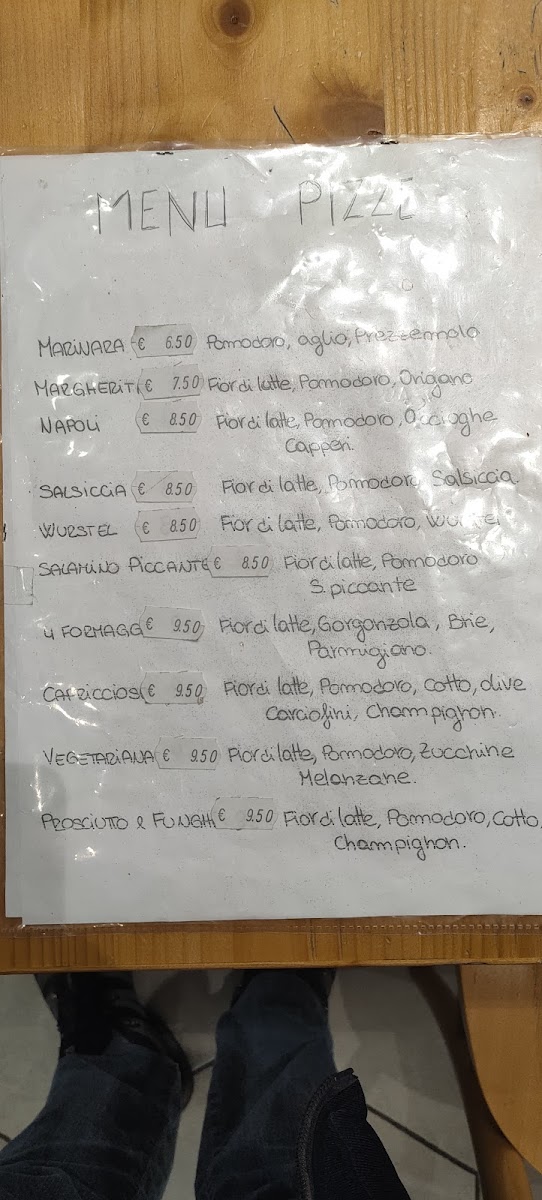 MENU PIZZE
MARINARA € 6.50 Pomodoro, aglio, Prezzemolo
MARGHERIT € 7.50 Fior di latte, Pomodoro, Origano
NAPOLI € 8.50 Fior di latte, Pomodoro, Acciughe
Capperi.
SALSICCIA € 8.50 Fior di latte, Pomodoro, Salsiccia.
WURSTEL € 8.50 Fior di latte, Pomodoro, Wurstel
SALAMINO PICCANTE € 8.50 Fior di latte, Pomodoro
S. piccante
4 FORMAGG € 9.50 Fior di latte, Gorgonzola, Brie,
Parmigiano.
CAPRICCIOS € 9.50 Fior di latte, Pomodoro, cotto, olive
Carciofini, Champignon.
VEGETARIANA € 9.50 Fior di latte, Pomodoro, Zucchine
Melanzane.
PROSCIUTTO e FUNGHI € 9.50 Fior di latte, Pomodoro, Cotto,
Champignon.